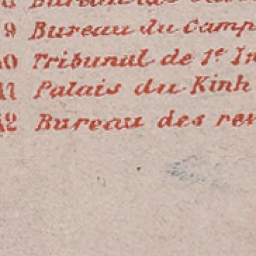 Bureau
9 Bureau du Camp
10 Tribunal de 1e In
11 Palais du Kinh
12 Bureau des rev